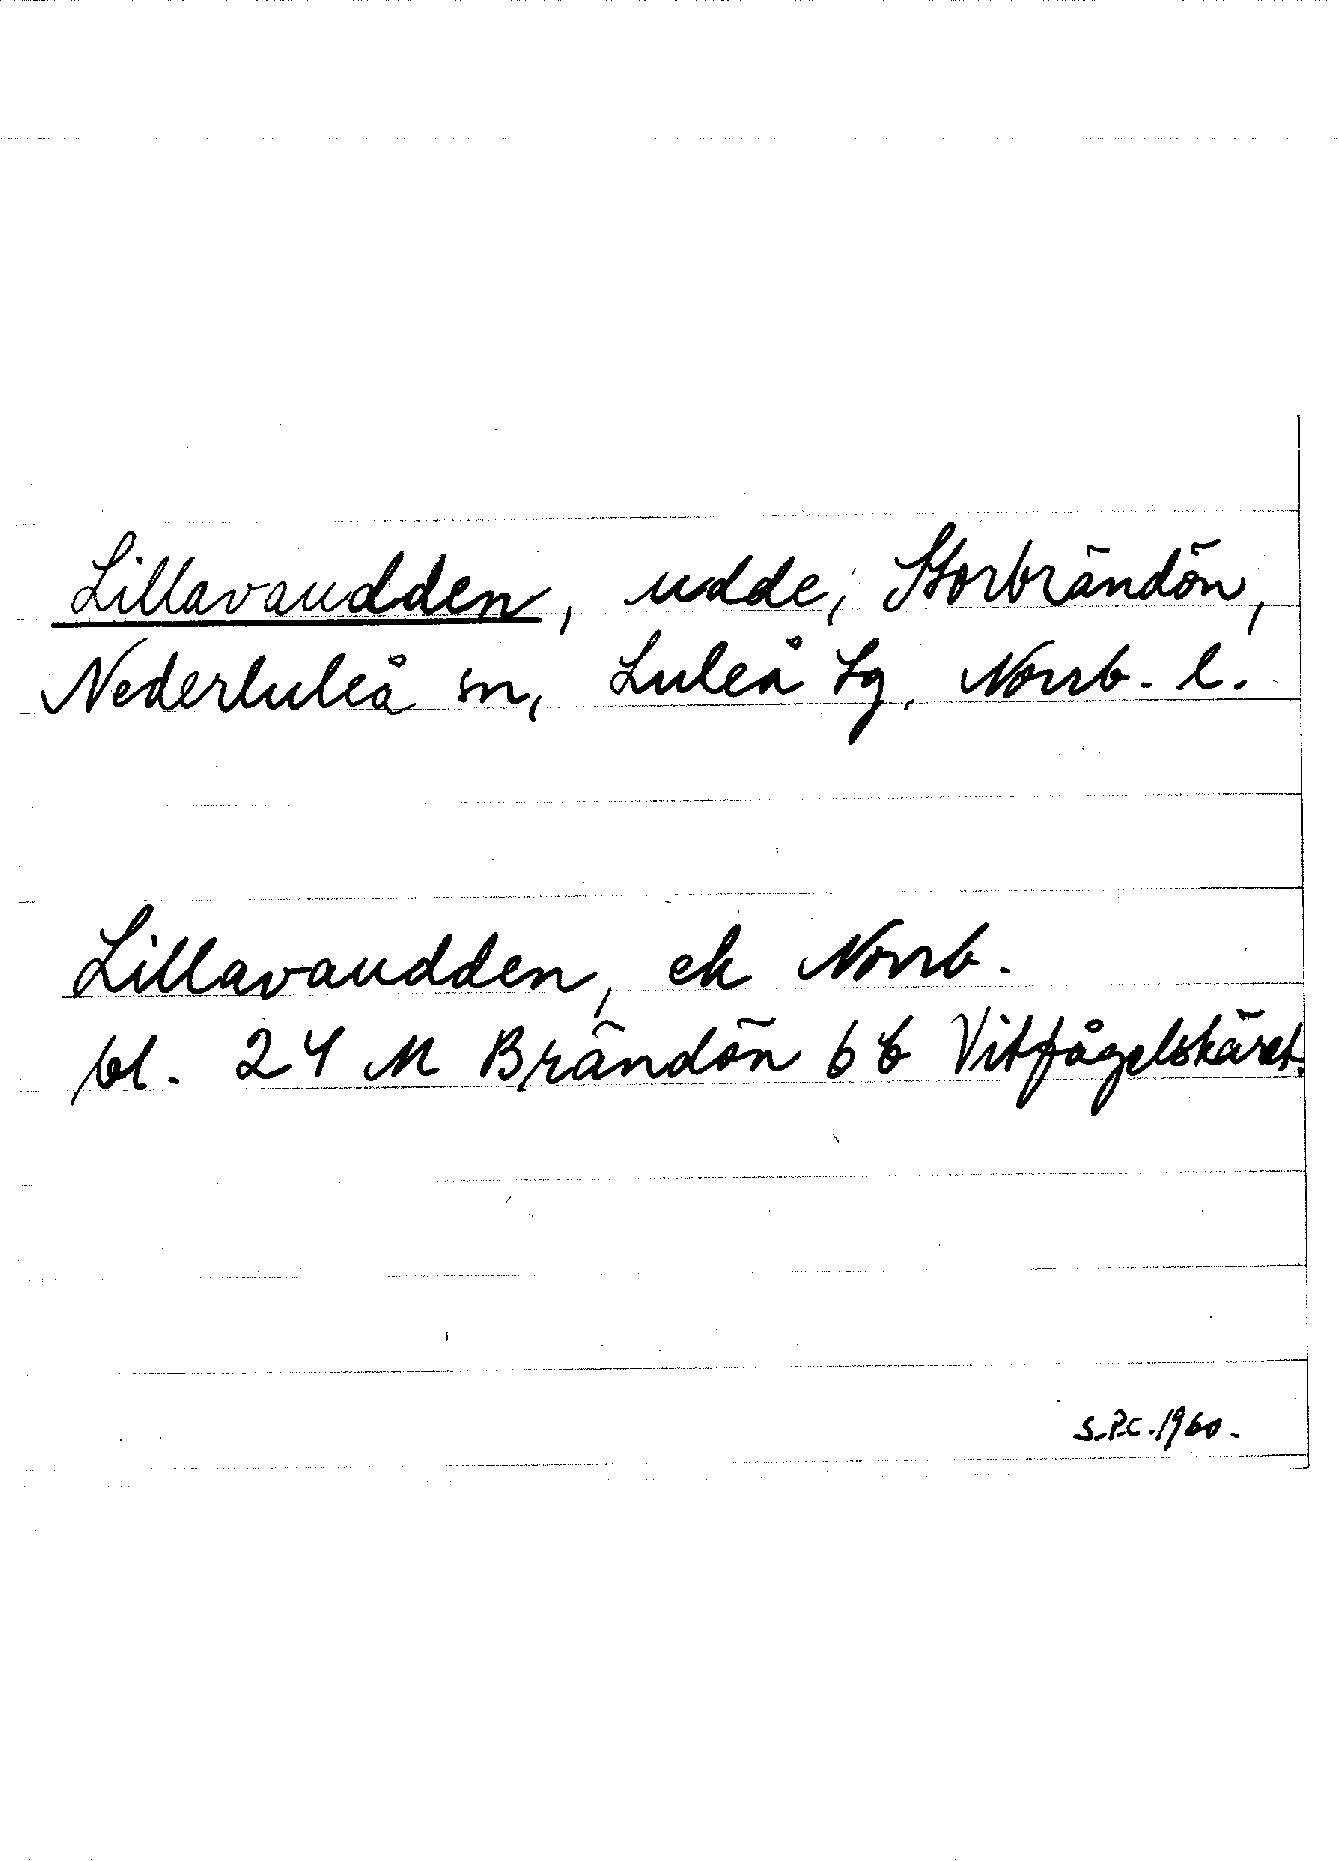 Lillavaudden, udde, Storbrändön,
Nederluleå sn, Luleå tg, Norrb. l.
Lillavaudden, ek Norrb.
bl. 24 M Brändön 6 b Vitfågelskäret.
S.P.C. 1960.